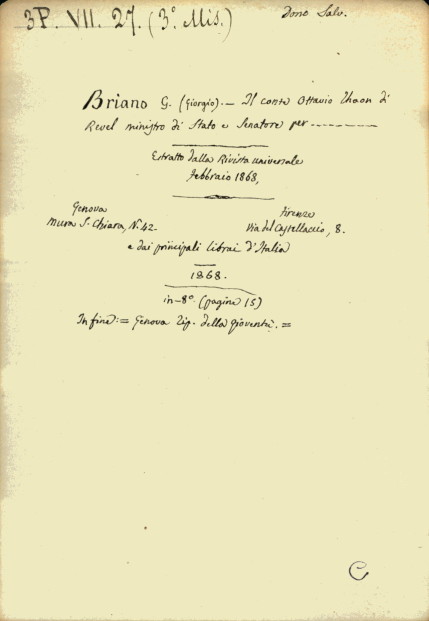 3P. VII. 27. (3.° Mis.)
Dono Salv.
Briano G. (Giorgio). — Il conte Ottavio Thaon di
Revel ministro di Stato e Senatore per ----------
Estratto dalla Rivista universale
febbraio 1868,
Genova
Mura S.ª Chiara, N.° 42.
Firenze
Via del Castellaccio, 8.
e dai principali librai d'Italia
1868.
in-8.° (pagine 15)
In fine: = Genova Tip. della Gioventù. =
C